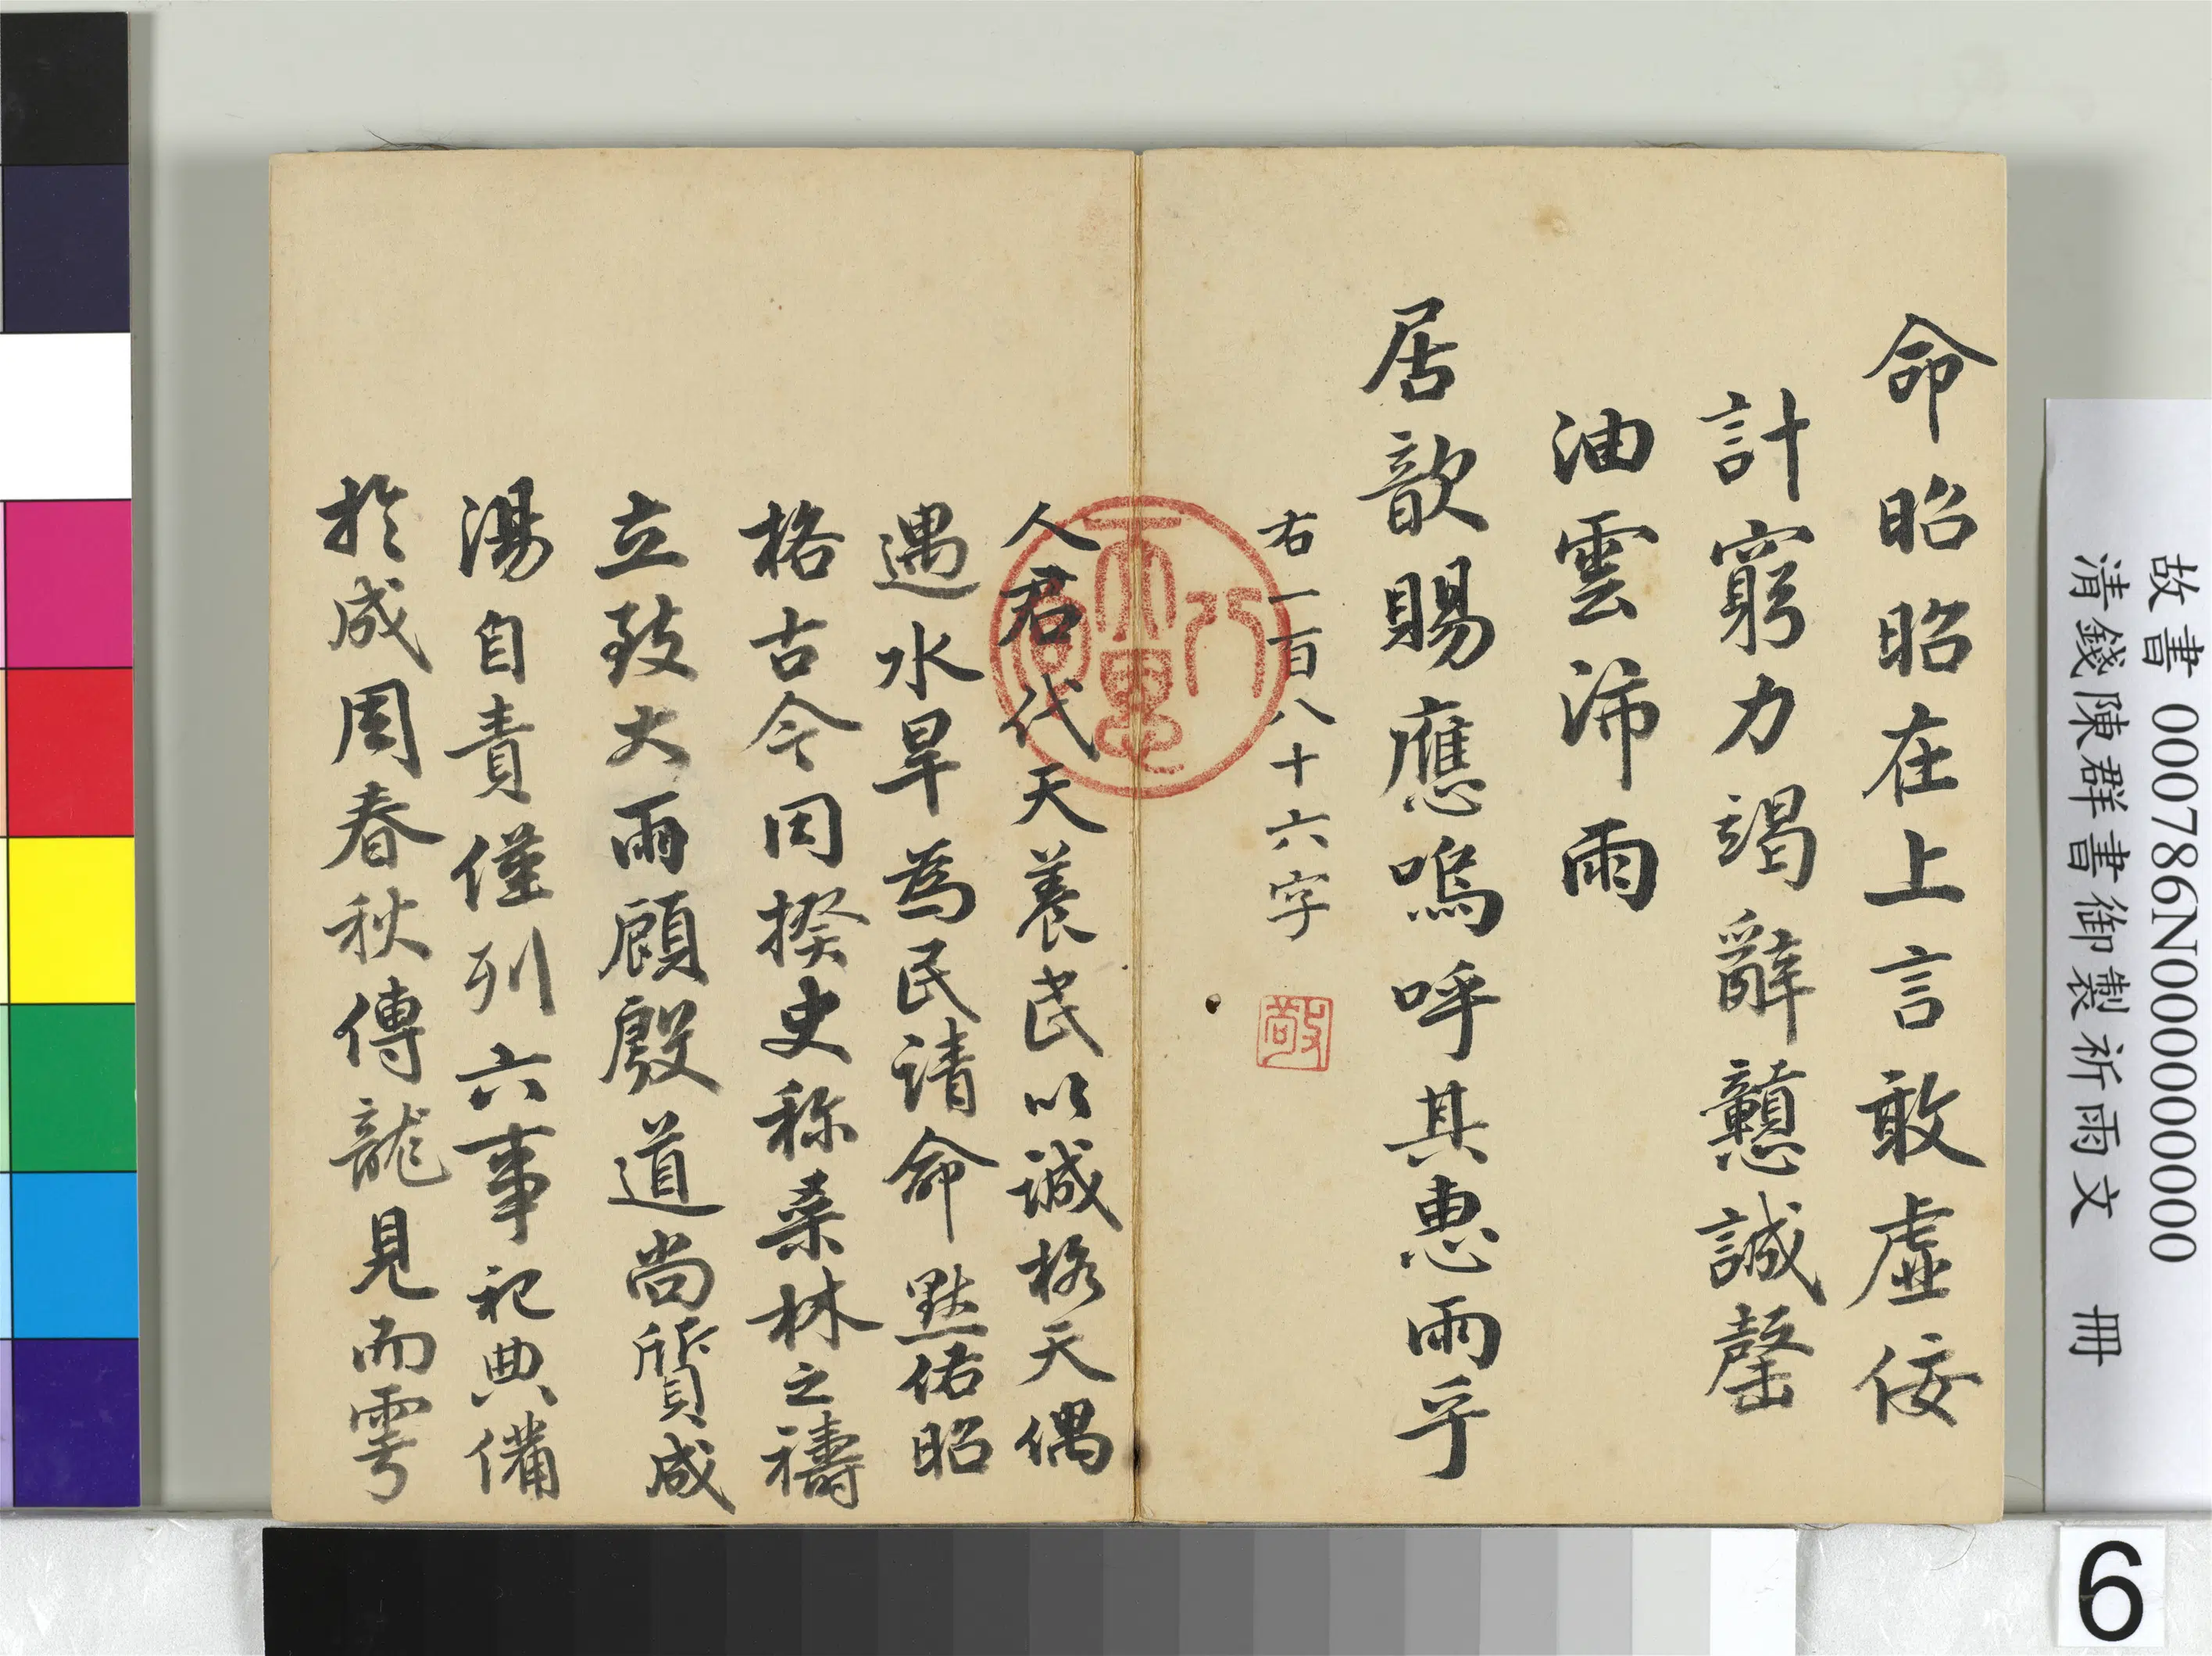 命昭昭在上言敢虛佞
計窮力竭辭戇誠罄
油雲沛雨
居歆賜應嗚呼其惠雨乎
右一百八十六字
敬
人君代天養民以誠格天偶
遇水旱為民請命默佑昭
格古今同揆史称桑林之禱
立致大雨顧殷道尚質成
湯自責僅列六事祀典備
於成周春秋傳龍見而雩
故書 000786N000000000
清錢陳群書御製祈雨文 冊
6